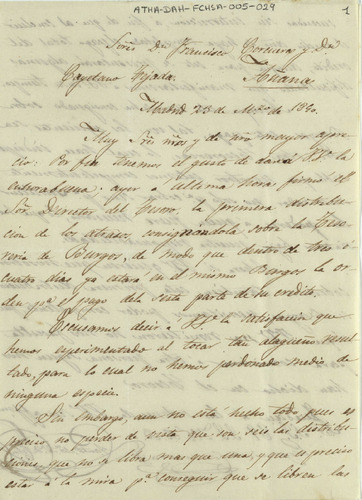 ATHA-DAH-FCHSA-005-029
1
Sres Dn Francisco Corcuera y Dn
Cayetano Tejada. Añana
Madrid 23 de Mzo de 1860.
Muy Sres mios y de mi mayor apre-
cio: Por fin tenemos el gusto de dar á VV. la
enhorabuena: ayer a ultima hora firmó el
Sor Director del Tesoro, la primera distribu-
cion de los atrasos, consignandola sobre la Teso-
reria de Burgos, de modo que dentro de tres o
cuatro dias ya estará en el mismo Burgos la or-
den pa el pago del sesta parte de su credito.
Escusamos decir a VV. la satisfacion que
hemos esperimentado al tocar tan alagueño resul-
tado, para lo cual no hemos perdonado medio de
ninguna especie.
Sin embargo, aun no está hecho todo, pues es
preciso no perder de vista que son seis las distribu-
ciones, que no se libra mas que una, y que es preciso
estar a la mira pa conseguir que se libren las